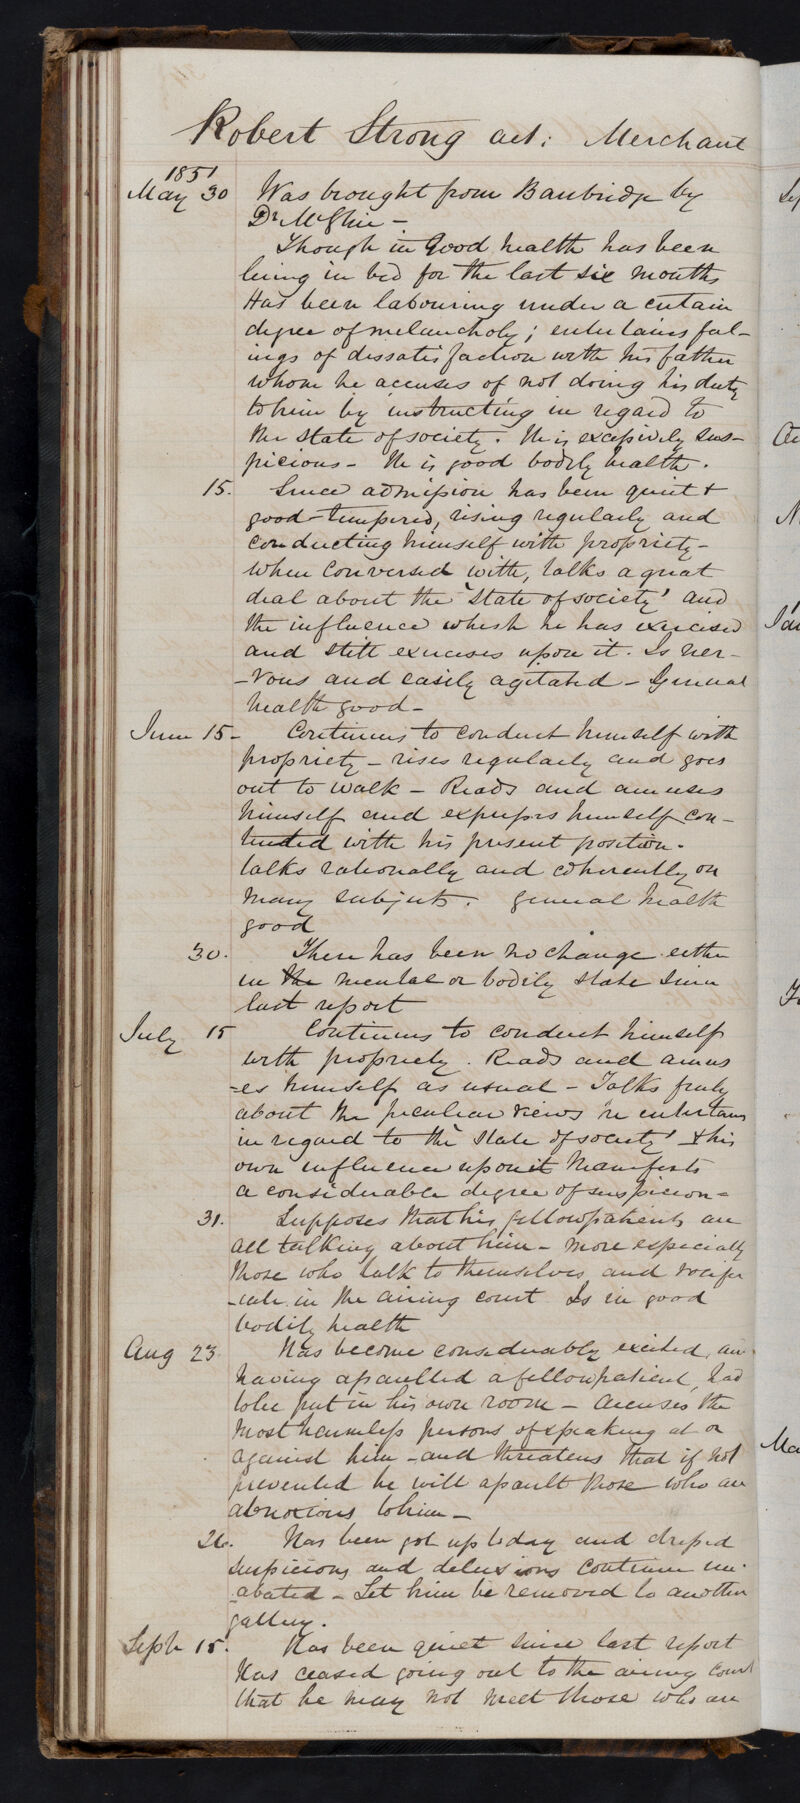 Robert Strong aet: Merchant
1851
May 30 Was brought from Banbridge by
Dr
Though in Good health has been
lying in bed for the last six months
Has been labouring under a certain
degree of melancholy; entertains feel-
ings of dissatisfaction with his father
whom he accuses of not doing his duty
to him by instructing in regard to
the state of society. He is excessively sus-
picious - He is good bodily health.
15. Since admission has been quiet &
good-tempered, rising regularly and
conducting himself with propriety -
When conversed with, talks a great
deal about the 'state of society' and
the influence which he has exercised
and still exercises upon it. Is ner-
-vous and easily agitated - General
health good -
June 15 - Continues to conduct himself with
propriety - rises regularly and goes
out to walk - Reads and amuses
himself and expresses himself con-
tented with his present position.
talks rationally and coherently on
many subjects. general health
good
30. There has been no change either
in the mental or bodily state since
last report
July 15 Continues to conduct himself
with propriety. Reads and amus
=es himself as usual - Talks freely
about the peculiar views he entertains
in regard to the 'state of society' & his
own influence upon it Manifests
a considerable degree of suspicion =
31. Supposes that his fellowpatients are
all talking about him - more especially
those who talk to themselves and vocifer
-ate in the airing court Is in good
bodily health
Aug 23. Has become considerably excited, and
having assaulted a fellowpatient, had
to be put in his own room - accuses the
most harmless persons of speaking at or
against him - and threatens that if not
prevented he will assault those who are
abnoxious to him -
26. Has been got up today and dressed
suspicions and delusions continue un-
-abated - Let him be removed to another
gallery.
Septr 15. Has been quiet since last report
Has ceased going out to the airing court
that he may not meet those who are